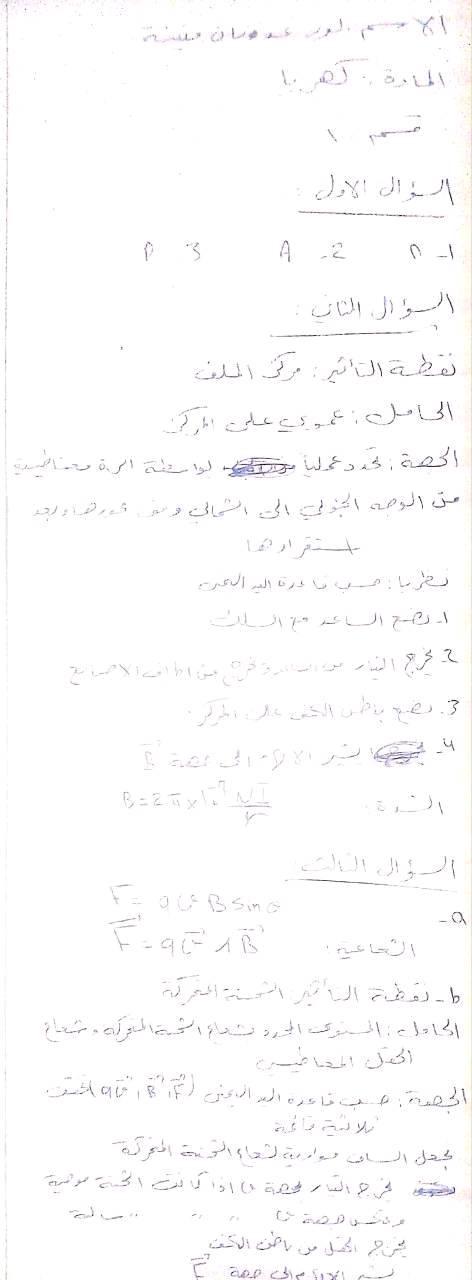 الاسم:
المادة: كهربا
قسم ١
السؤال الاول:
1- 2- A 3
السؤال الثاني:
نقطة التأثير: مركز الملف
الحامل: عمودي على المركز
الجهة: تحدد عملياً بواسطة ابرة مغناطيسية
من الوجه الجنوبي الى الشمالي وبعد
استقرارها
نظريا: حسب قاعدة اليد اليمنى
1- نضع الساعد مع السلك
2- يخرج التيار من اطراف الاصابع
3. نضع باطن الكف على المركز.
4- يشير الابهام الى جهة B
الشدة: B=2π×10⁻⁷ NI/r
السؤال الثالث
a- F= qυB sinθ
الشعاعية: F = qυ ∧ B
b- نقطة التأثير الشحنة المتحركة
الحامل: المستوى المحدد بشعاع الشحنة المتحركة وشعاع
الحقل المغناطيسي
الجهة: حسب قاعدة اليد اليمنى (qυ, B, F) تحقق
ثلاثية قائمة
نجعل الساعد موازية لشعاع الشحنة المتحركة
يخرج التيار بجهة υ اذا كانت الشحنة موجبة
وبعكس جهة υ " " سالبة
يخرج الحقل من باطن الكف
يشير الابهام الى جهة F